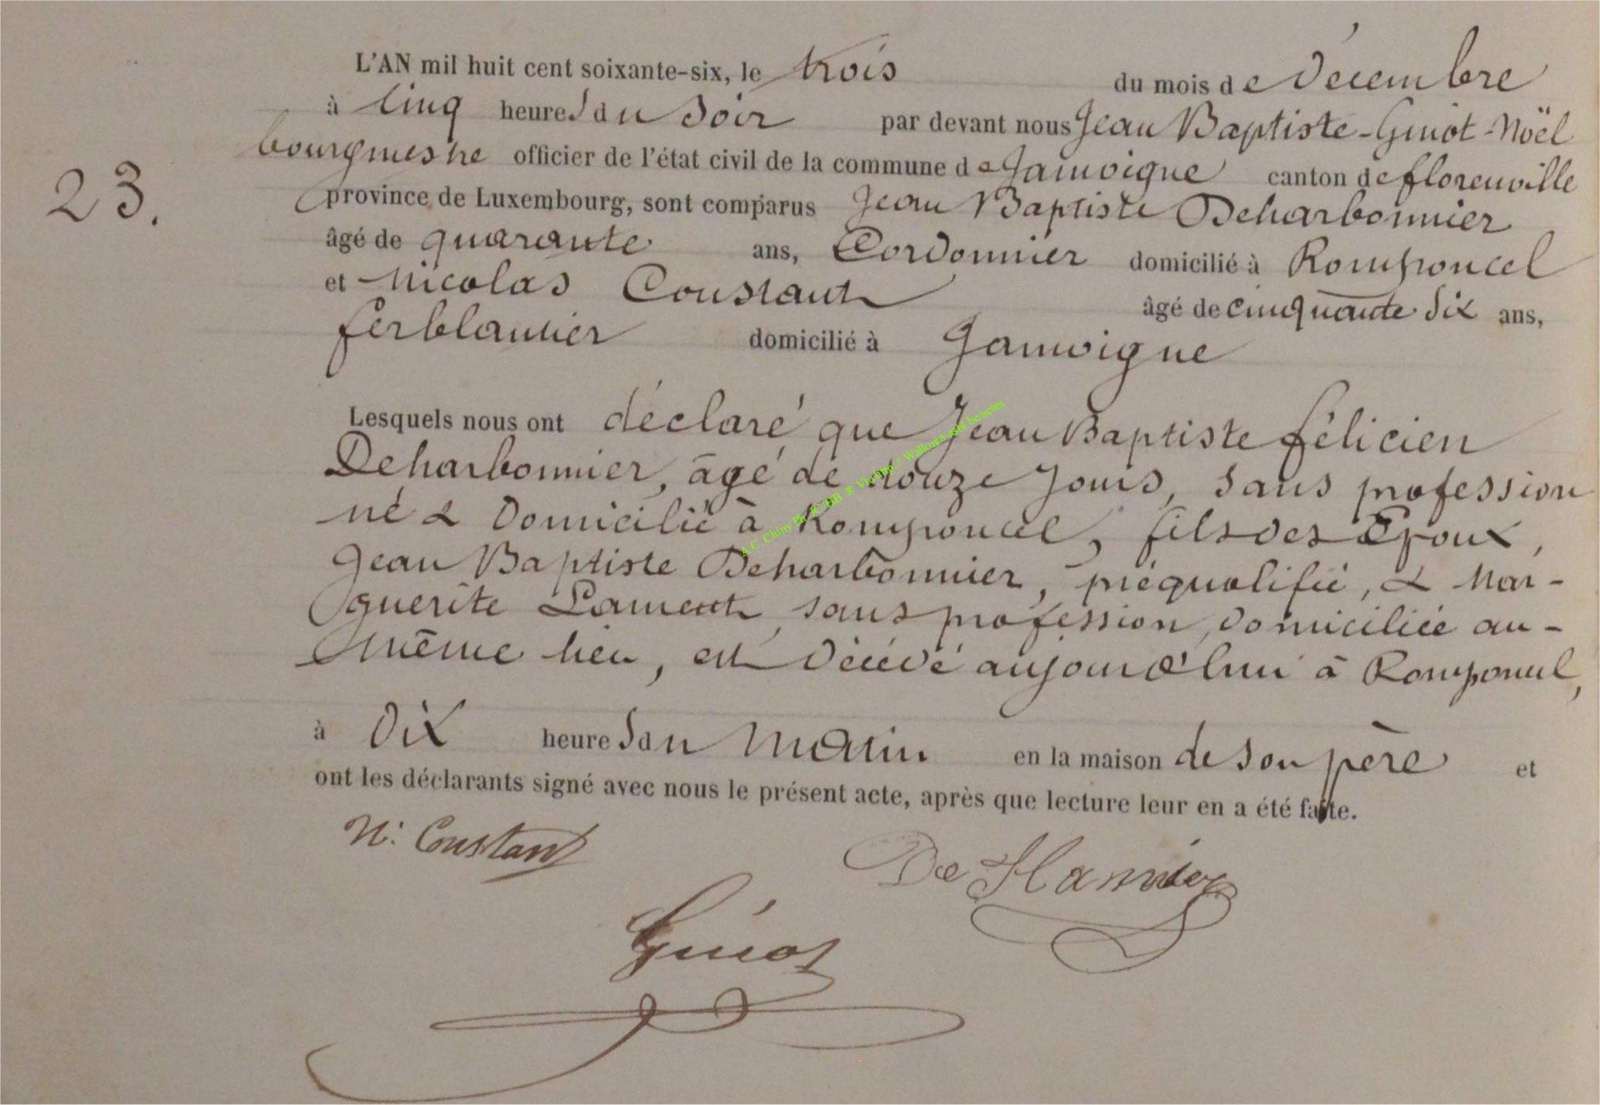 L'AN mil huit cent soixante-six, le trois du mois de Décembre
à cinq heures du Soir par devant nous Jean Baptiste-Guiot-Noël
bourgmestre officier de l'état civil de la commune de Jamoigne canton de florenville
23.
province de Luxembourg, sont comparus Jean Baptiste Deharbonnier
âgé de quarante ans, Cordonnier domicilié à Romponcel
et Nicolas Constant âgé de cinquante Six ans,
ferblantier domicilié à Jamoigne
Lesquels nous ont déclaré que Jean Baptiste félicien
Deharbonnier, âgé de douze Jours, Sans profession
né & Domicilié à Romponcel, fils des Epoux,
Jean Baptiste Deharbonnier, préqualifié, & Mar-
guerite Lament, sans profession, domiciliée au-
même lieu, est décédé aujourd'hui à Romponcel,
à Dix heures du Matin en la maison de son père et
ont les déclarants signé avec nous le présent acte, après que lecture leur en a été faite.
N: Constant
Guiot